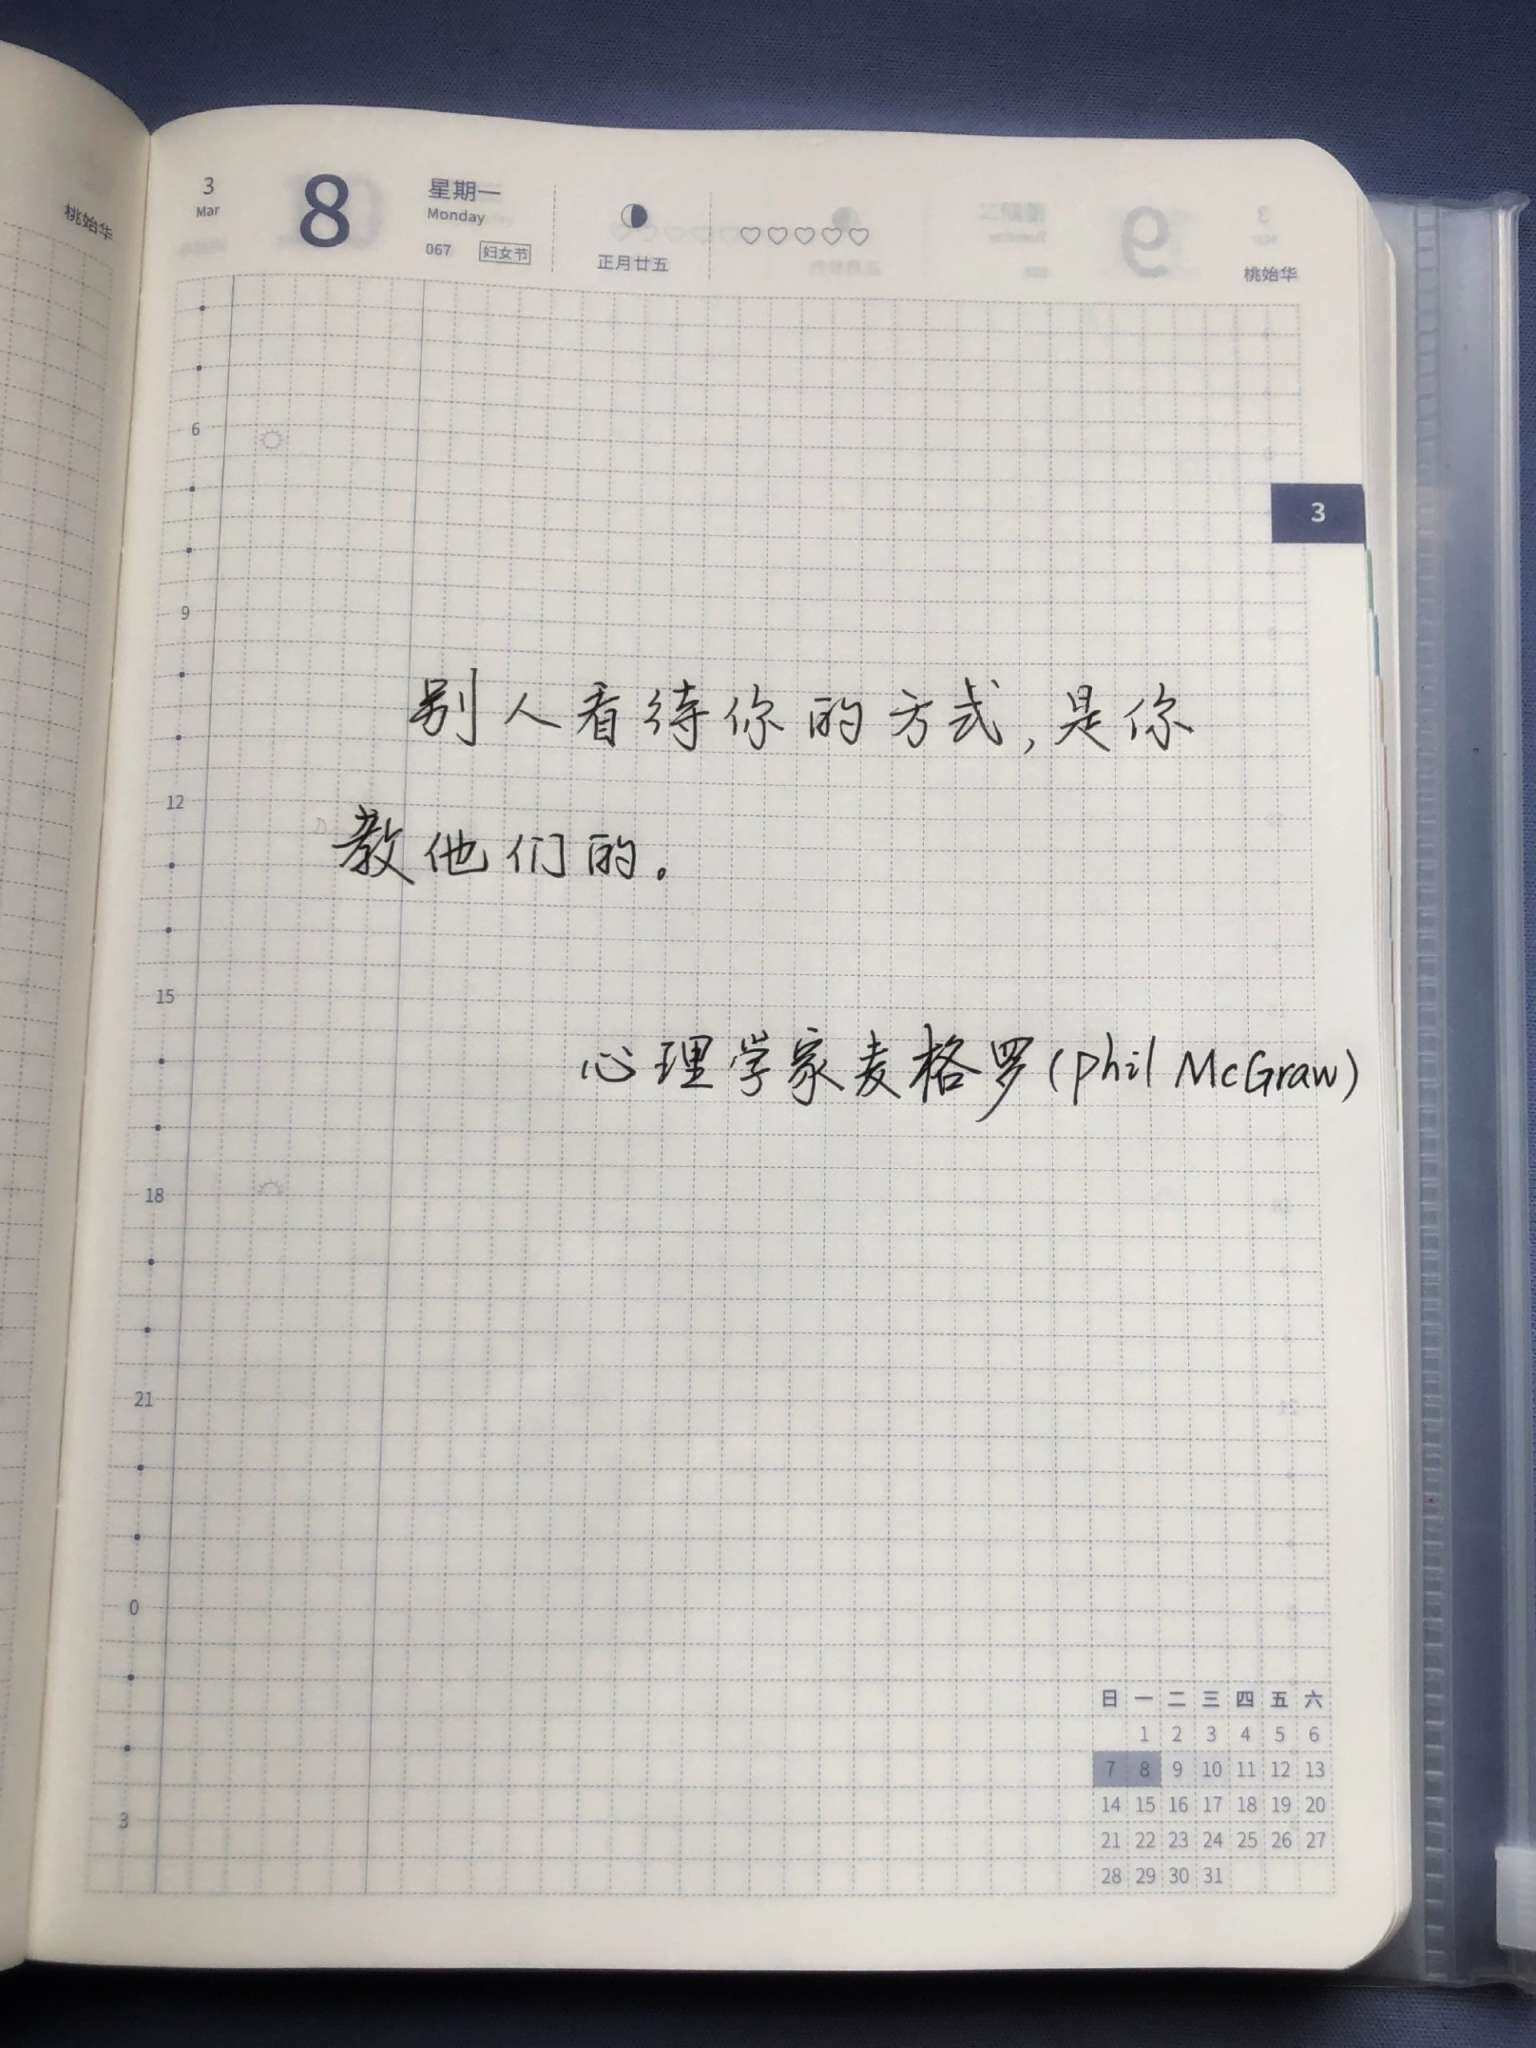 3
Mar
8
星期一
Monday
067 妇女节
正月廿五
桃始华
桃始华
3
6
9
12
15
18
21
0
3
别人看待你的方式,是你
教他们的。
心理学家麦格罗(phil McGraw)
日 一 二 三 四 五 六
1 2 3 4 5 6
7 8 9 10 11 12 13
14 15 16 17 18 19 20
21 22 23 24 25 26 27
28 29 30 31